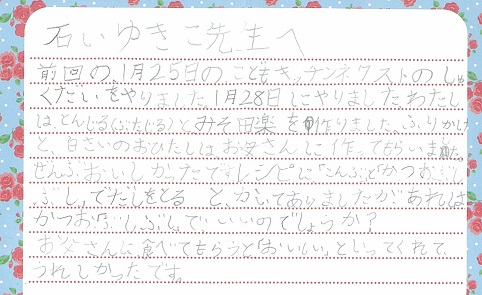 石いゆきこ先生へ
前回の、1月25日の、こどもキッチンネクストのしゅ
くだいをやりました。1月28日にやりました。わたし
はとんじる(ぶたじる)とみそ田楽を作りました。ふりかけ
と、白さいのおひたしはお父さんに作ってもらいました。
ぜんぶおいしかったです。レシピに「こんぶと「かつおぶし
ぶし」でだしをとる と、かいてありましたが、あれは
かつおぶしぶし、でいいのでしょうか?
お父さんに食べてもらうと「おいしい」といってくれて
うれしかったです。